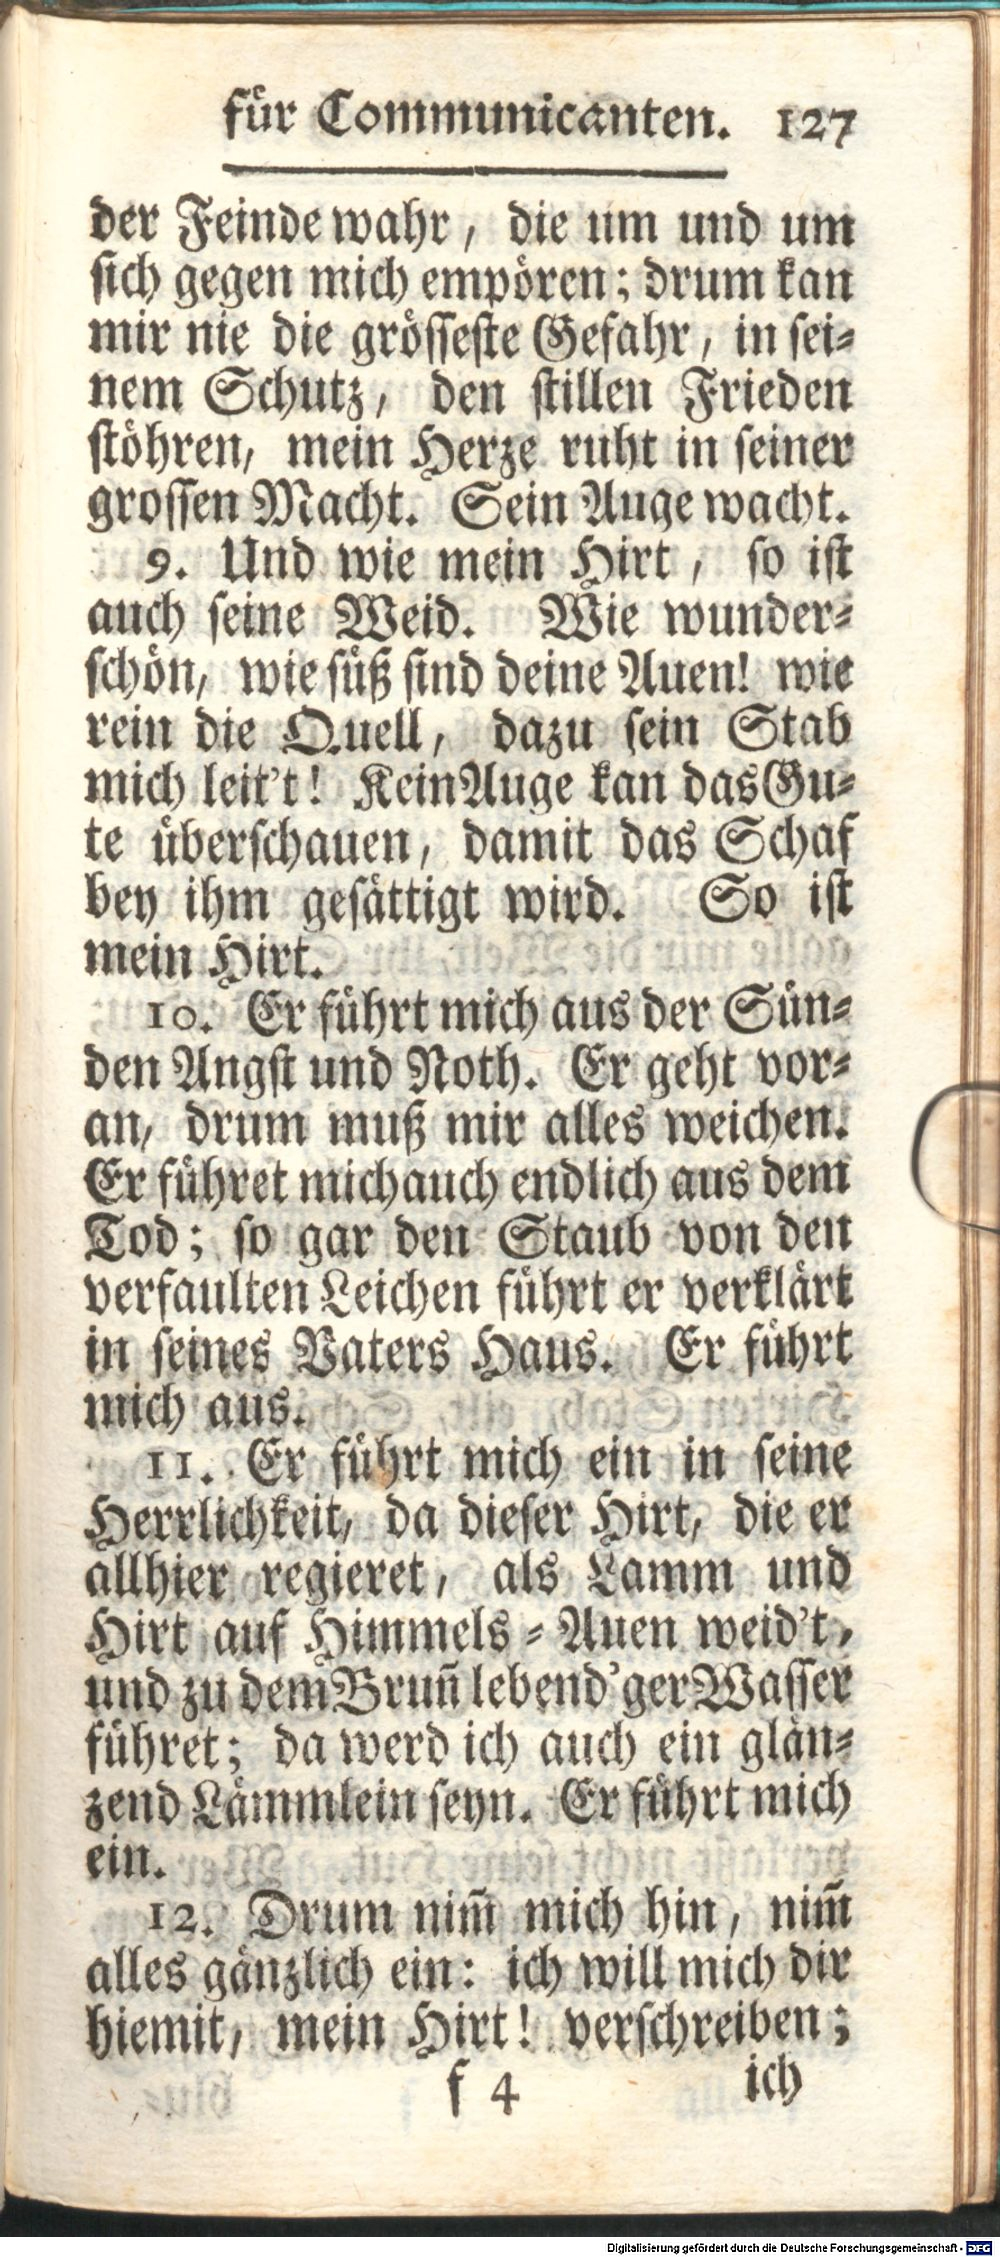 für Communicanten. 127
der Feinde wahr, die um und um
sich gegen mich empören; drum kan
mir nie die grösseste Gefahr, in sei-
nem Schutz, den stillen Frieden
stöhren, mein Herze ruht in seiner
grossen Macht. Sein Auge wacht.
9. Und wie mein Hirt, so ist
auch seine Weid. Wie wunder-
schön, wie süß sind deine Auen! wie
rein die Quell, dazu sein Stab
mich leit't! Kein Auge kan das Gu-
te überschauen, damit das Schaf
bey ihm gesättigt wird. So ist
mein Hirt.
10. Er führt mich aus der Sün-
den Angst und Noth. Er geht vor-
an, drum muß mir alles weichen.
Er führet mich auch endlich aus dem
Tod; so gar den Staub von den
verfaulten Leichen führt er verklärt
in seines Vaters Haus. Er führt
mich aus.
11. Er führt mich ein in seine
Herrlichkeit, da dieser Hirt, die er
allhier regieret, als Lamm und
Hirt auf Himmels-Auen weid't,
und zu dem Brun̄ lebend'ger Wasser
führet; da werd ich auch ein glän-
zend Lämmlein seyn. Er führt mich
ein.
12. Drum nim̄ mich hin, nim̄
alles gänzlich ein: ich will mich dir
hiemit, mein Hirt! verschreiben;
f 4 ich
Digitalisierung gefördert durch die Deutsche Forschungsgemeinschaft - DFG